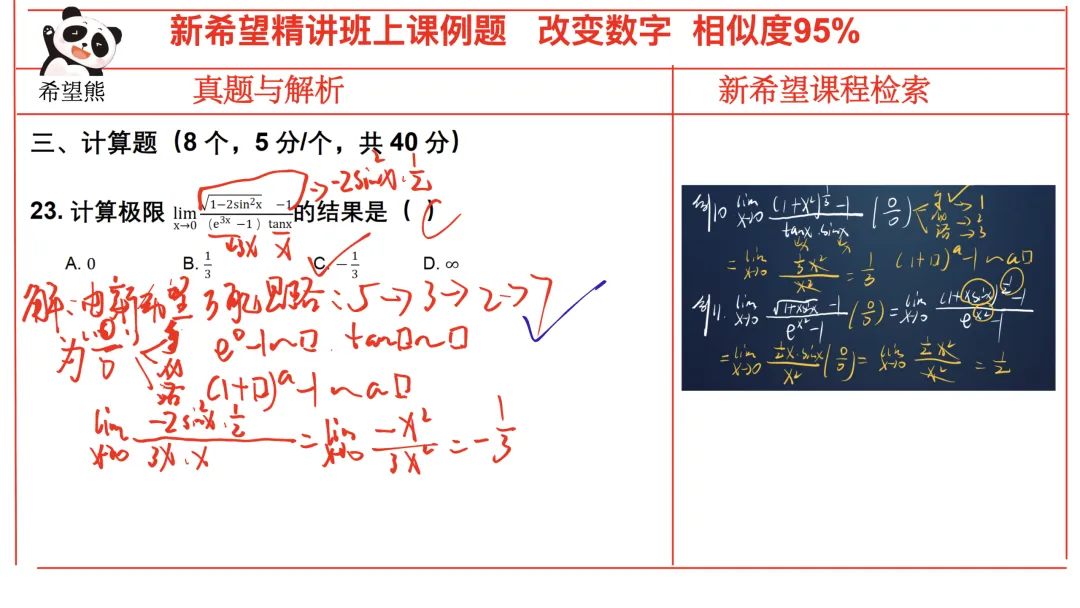 新希望精讲班上课例题 改变数字 相似度95%
希望熊
真题与解析
新希望课程检索
三、计算题（8 个，5 分/个，共 40 分）
→ -2sin²x·1/2
23. 计算极限 lim x→0 (√(1−2sin²x) −1)/((e^{3x} −1) tanx) 的结果是（ ） C
→3x x
A. 0 B. 1/3 C. −1/3 D. ∞
解：由新希望 思路：5→3→2→7
为 0/0
e^□-1~□ tan□~□
(1+□)^a-1~a□
lim x→0 (-2sin²x·1/2)/(3x·x) = lim x→0 (-x²)/(3x²) = -1/3
例10 lim x→0 ((1+x²)^{1/3}-1)/(tanx·sinx) (0/0) →1 →2 →3
= lim x→0 (1/3 x²)/x² = 1/3 (1+□)^a-1~a□
例11. lim x→0 (√(1+xsinx)-1)/(e^{x²}-1) (0/0) = lim x→0 ((1+xsinx)^{1/2}-1)/(e^{x²}-1)
= lim x→0 (1/2 x·sinx)/x² (0/0) = lim x→0 (1/2 x²)/x² = 1/2